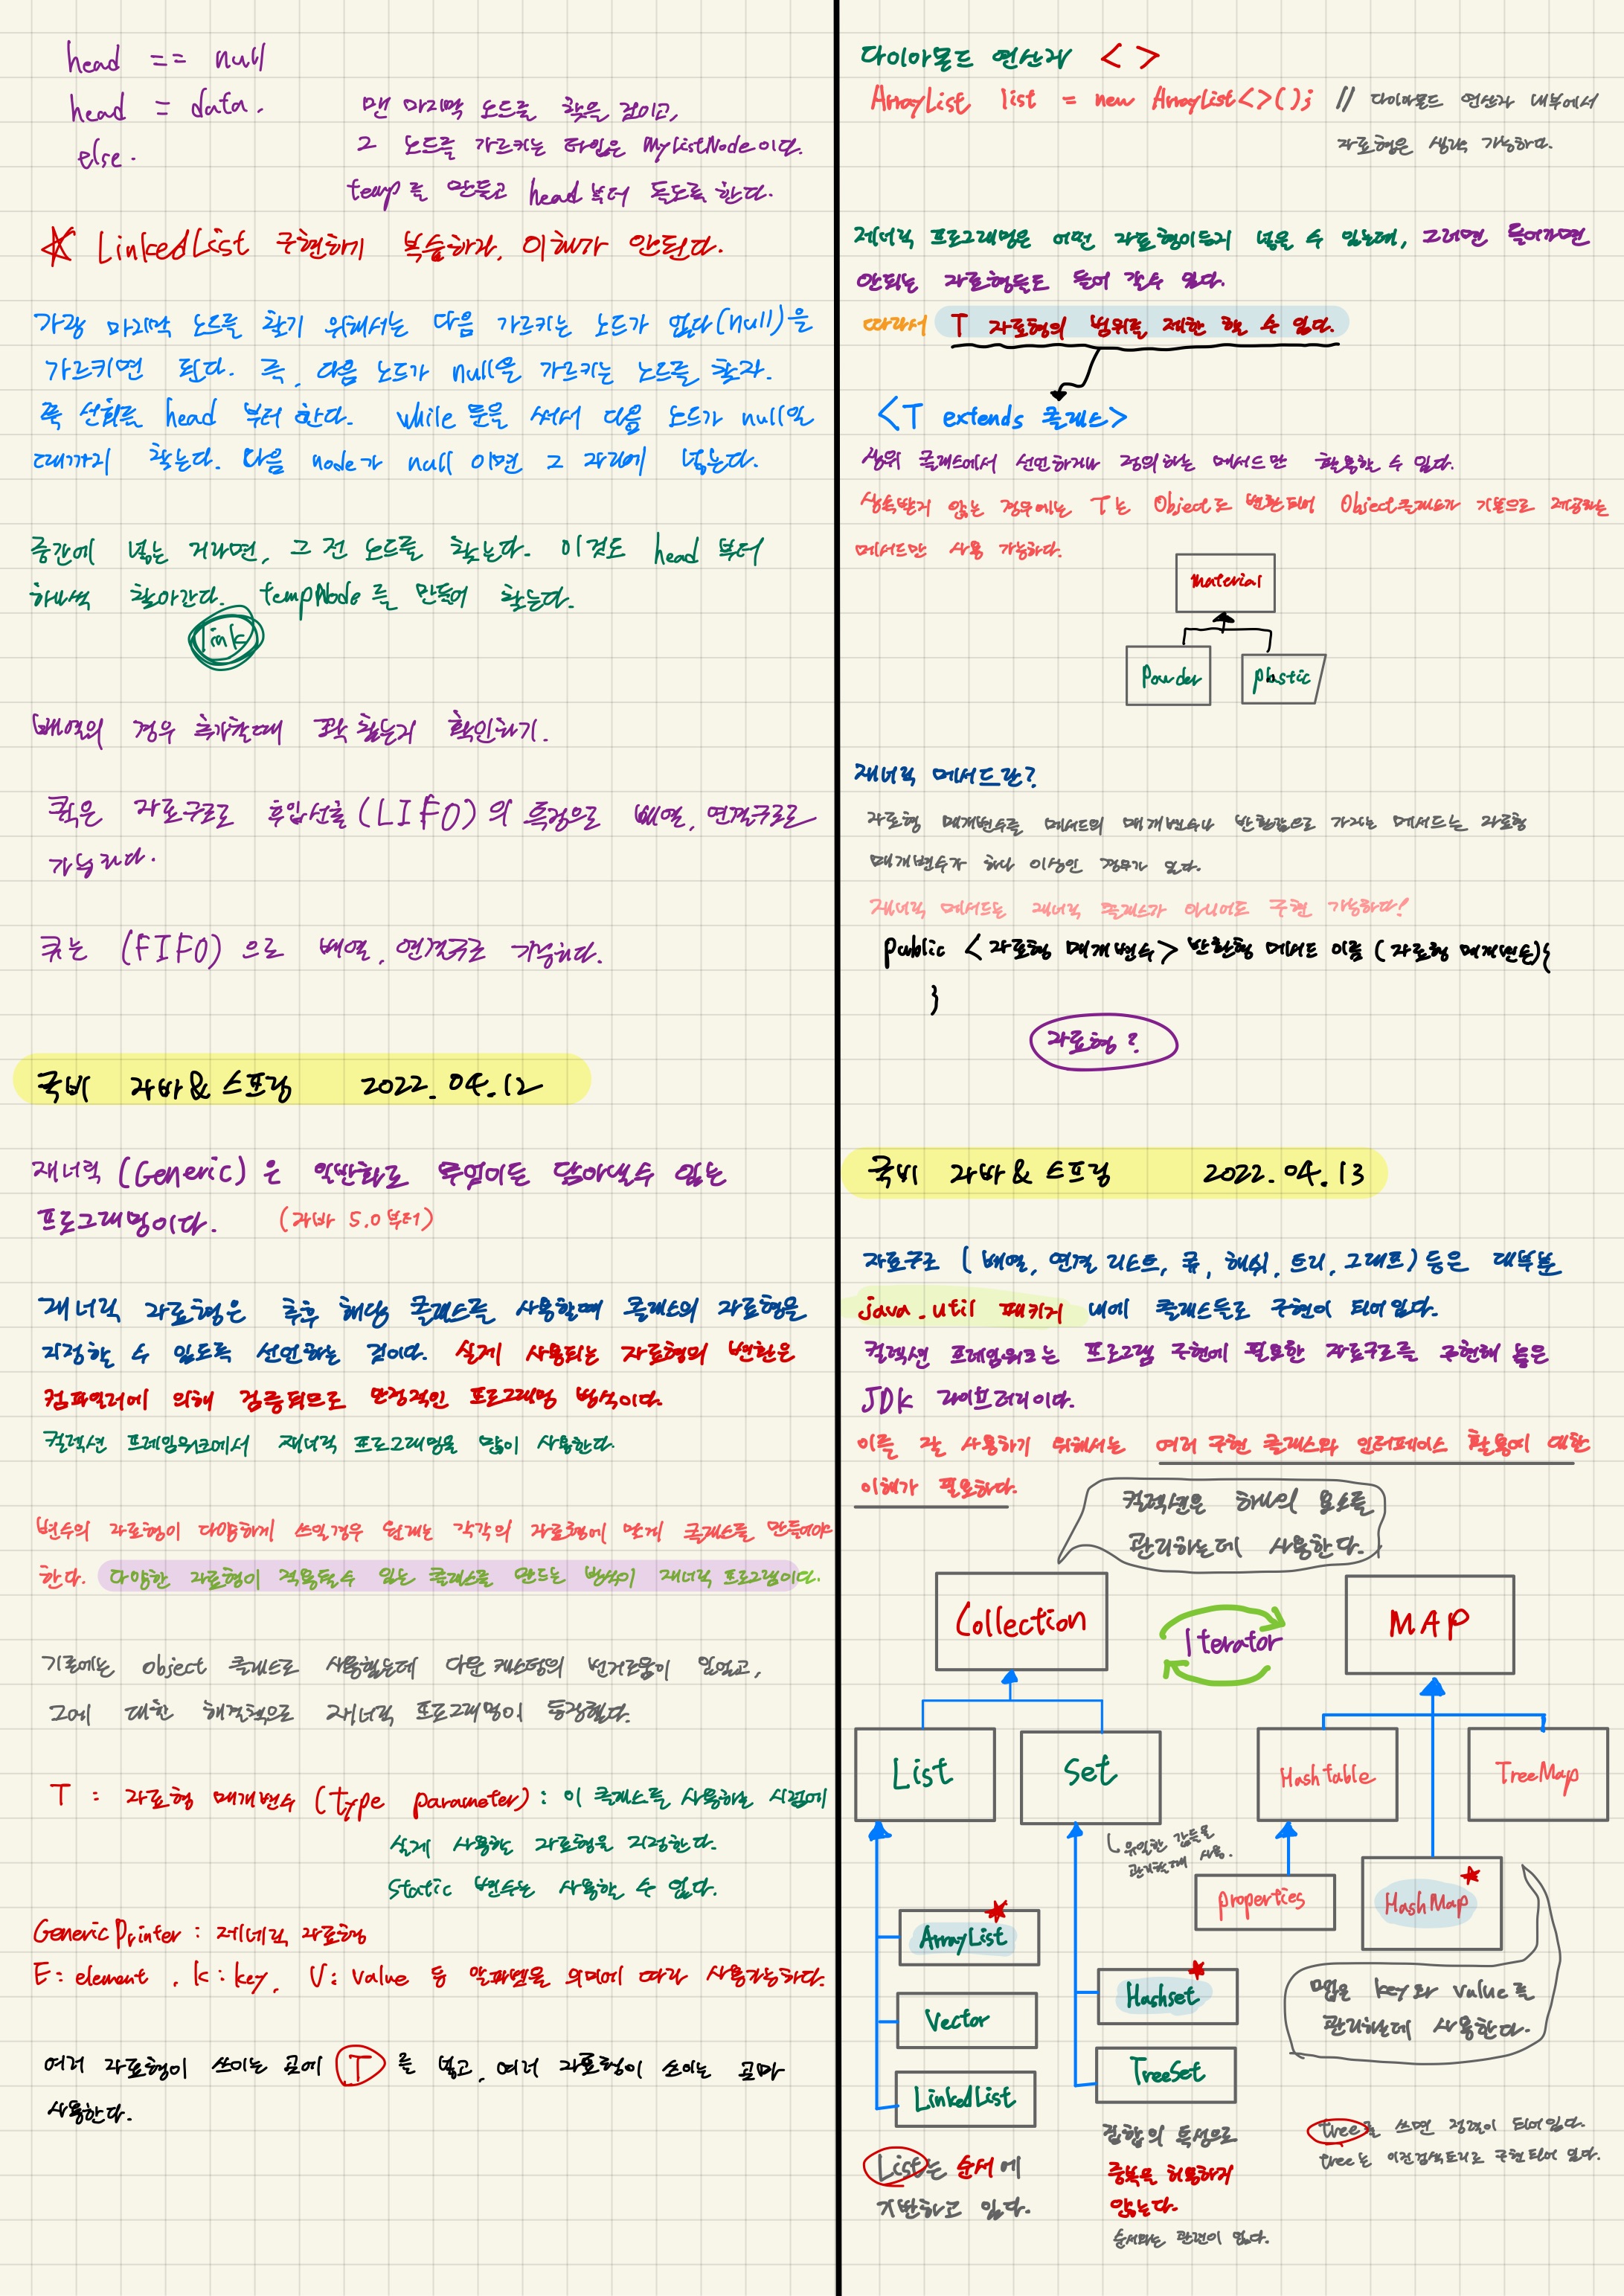 head == null
head = data.
else.
맨 마지막 노드를 찾을 것이고,
그 노드를 가르키는 타입은 MyListNode이다.
temp를 만들고 head부터 돌도록 한다.
☆ LinkedList 구현하기 복습하자, 이해가 안된다.
가장 마지막 노드를 찾기 위해서는 다음 가르키는 노드가 없다(null)을
가르키면 된다. 즉, 다음 노드가 null을 가르키는 노드를 찾자.
쭉 순회를 head 부터 한다. while 문을 써서 다음 노드가 null일
때까지 찾는다. 다음 node가 null 이면 그 자리에 넣는다.
중간에 넣는 거라면, 그 전 노드를 찾는다. 이것도 head 부터
하나씩 찾아간다. tempNode를 만들어 찾는다.
link
배열의 경우 추가할때 꽉 찼는지 확인하기.
스택은 자료구조로 후입선출(LIFO)의 특징으로 배열, 연결구조로
가능하다.
큐는 (FIFO)으로 배열, 연결구조로 가능하다.
국비 자바&스프링 2022.04.12
재너릭 (Generic)은 일반화로 무엇이든 담아낼수 있는
프로그래밍이다. (자바 5.0부터)
재너릭 자료형은 추후 해당 클래스를 사용할때 클래스의 자료형을
지정할 수 있도록 선언하는 것이다. 실제 사용되는 자료형의 변환은
컴파일러에 의해 검증되므로 안정적인 프로그래밍 방식이다.
컬렉션 프레임워크에서 재너릭 프로그래밍을 많이 사용한다.
변수의 자료형이 다양하게 쓰일경우 원래는 각각의 자료형에 맞게 클래스를 만들어야
한다. 다양한 자료형이 적용될수 있는 클래스를 만드는 방식이 재너릭 프로그램이다.
기존에는 object 클래스로 사용했는데 다운 캐스팅의 번거로움이 있었고,
그에 대한 해결책으로 재너릭 프로그래밍이 등장했다.
T : 자료형 매개변수 (type parameter) : 이 클래스를 사용하는 시점에
실제 사용할 자료형을 지정한다.
static 변수는 사용할 수 없다.
GenericPrinter : 제네릭 자료형
E : element, K : key, V : value 등 알파벳을 의미에 따라 사용가능하다.
여러 자료형이 쓰이는 곳에 T 를 넣고, 여러 자료형이 쓰이는 곳마다
사용한다.
다이아몬드 연산자 < >
ArrayList list = new ArrayList<>(); // 다이아몬드 연산자 내부에서
자료형은 생략 가능하다.
제너릭 프로그래밍은 어떤 자료형이든지 넣을 수 있는데, 그러면 들어가면
안되는 자료형들도 들어 갈수 있다.
따라서 T 자료형의 범위를 제한 할 수 있다.
<T extends 클래스>
상위 클래스에서 선언하거나 정의하는 메서드만 활용할 수 있다.
상속받지 않는 경우에는 T는 Object로 변환되어 Object클래스가 기본으로 제공하는
메서드만 사용 가능하다.
Material
Powder
Plastic
재너릭 메서드란?
자료형 매개변수를 메서드의 매개변수나 반환값으로 가지는 메서드는 자료형
매개변수가 하나 이상인 경우가 있다.
재너릭 메서드는 재너릭 클래스가 아니어도 구현 가능하다!
public <자료형 매개변수> 반환형 메서드 이름 (자료형 매개변수){
}
자료형?
국비 자바&스프링 2022.04.13
자료구조 (배열, 연결 리스트, 큐, 해쉬, 트리, 그래프)등은 대부분
java.util 패키지 내에 클래스들로 구현이 되어있다.
컬렉션 프레임워크는 프로그램 구현에 필요한 자료구조를 구현해 놓은
JDK 라이브러리이다.
이를 잘 사용하기 위해서는 여러 구현 클래스와 인터페이스 활용에 대한
이해가 필요하다.
컬렉션은 하나의 요소를
관리하는데 사용한다.
Collection
Iterator
MAP
List
Set
Hashtable
TreeMap
유일한 값들을
관리할때 사용.
properties
HashMap
ArrayList
Vector
LinkedList
Hashset
TreeSet
맵은 key와 value를
관리하는데 사용한다.
List는 순서에
기반하고 있다.
집합의 특성으로
중복을 허용하지
않는다.
순서와는 관련이 없다.
tree를 쓰면 정렬이 되어있다.
tree는 이진검색트리로 구현되어 있다.